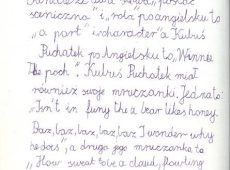 sceniczna i "rola" po angielsku to
"a part" i "character" a Kubuś
Puchatek po Angielsku to "Winnee
the pooh". Kubuś Puchatek miał
również swoje mruczanki. Jedna to:
"Isn't in funy the a bear likes honey.
Baz, baz, baz, baz, baz I wonder why
he dois", a druga jego mruczanka to
"How sweat to be a cloud, flowting